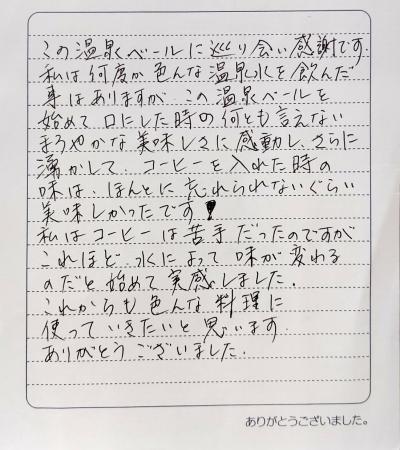 この温泉ベールに巡り会い感謝です.
私は何度か色んな温泉水を飲んだ
事はありますが この温泉ベールを
始めて口にした時の何とも言えない
まろやかな美味しさに感動し、さらに
湧かして、コーヒーを入れた時の
味は、ほんとに忘れられないぐらい
美味しかったです!
私はコーヒーは苦手だったのですが
これほど 水によって味が変わる
のだと始めて実感しました.
これからも色んな料理に
使っていきたいと思います.
ありがとうございました.
ありがとうございました。